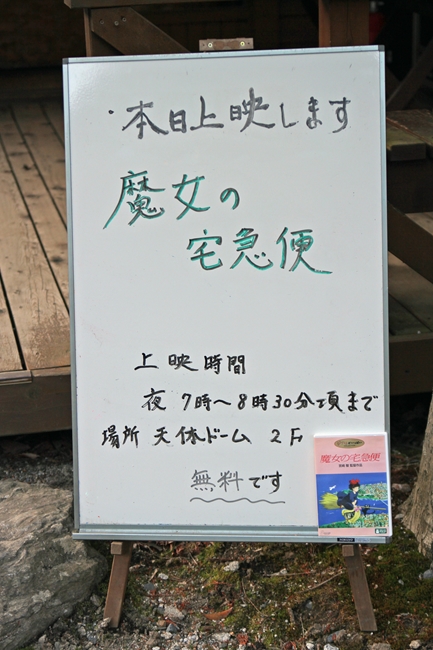 ・本日上映します
魔女の
宅急便
上映時間
夜 7時〜8時30分頃まで
場所 天体ドーム 2F
無料です
魔女の宅急便